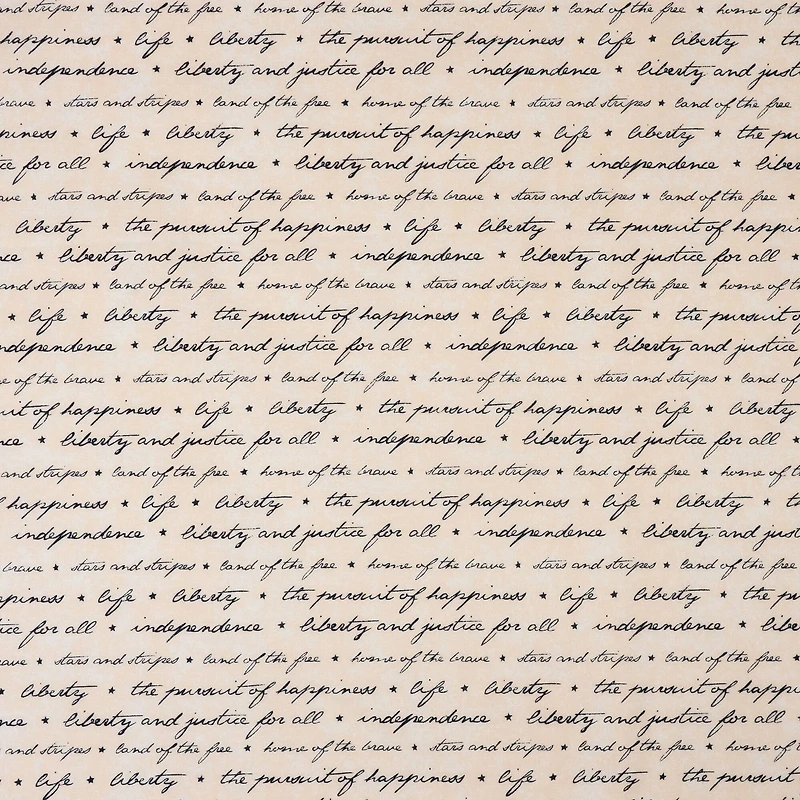 and stripes ★ land of the free ★ home of the brave ★ stars and stripes ★ land of the free ★ home of
happiness ★ life ★ liberty ★ the pursuit of happiness ★ life ★ liberty ★
independence ★ liberty and justice for all ★ independence ★ liberty and
brave ★ stars and stripes ★ land of the free ★ home of the brave ★ stars and stripes ★ land of the free
★ life ★ liberty ★ the pursuit of happiness ★ life ★ liberty ★ the
for all ★ independence ★ liberty and justice for all ★ independence ★
★ stars and stripes ★ land of the free ★ home of the brave ★ stars and stripes ★ land of the free ★
liberty ★ the pursuit of happiness ★ life ★ liberty ★ the pursuit of
★ liberty and justice for all ★ independence ★ liberty and justice for all ★
and stripes ★ land of the free ★ home of the brave ★ stars and stripes ★ land of the free ★ home of
★ life ★ liberty ★ the pursuit of happiness ★ life ★ liberty ★ the pursuit
★ liberty and justice for all ★ independence ★ liberty and justice
of the brave ★ stars and stripes ★ land of the free ★ home of the brave ★ stars and stripes ★ land of
of happiness ★ life ★ liberty ★ the pursuit of happiness ★ life ★ liberty
★ liberty and justice for all ★ independence ★ liberty and justice for all ★
and stripes ★ land of the free ★ home of the brave ★ stars and stripes ★ land of the free ★ home of
happiness ★ life ★ liberty ★ the pursuit of happiness ★ life ★ liberty ★
independence ★ liberty and justice for all ★ independence ★ liberty and
brave ★ stars and stripes ★ land of the free ★ home of the brave ★ stars and stripes ★ land of the free
★ life ★ liberty ★ the pursuit of happiness ★ life ★ liberty ★ the
for all ★ independence ★ liberty and justice for all ★ independence ★
★ stars and stripes ★ land of the free ★ home of the brave ★ stars and stripes ★ land of the free ★
★ liberty ★ the pursuit of happiness ★ life ★ liberty ★ the pursuit of
★ liberty and justice for all ★ independence ★ liberty and justice for all ★
and stripes ★ land of the free ★ home of the brave ★ stars and stripes ★ land of the free ★ home of
★ life ★ liberty ★ the pursuit of happiness ★ life ★ liberty ★ the pursuit